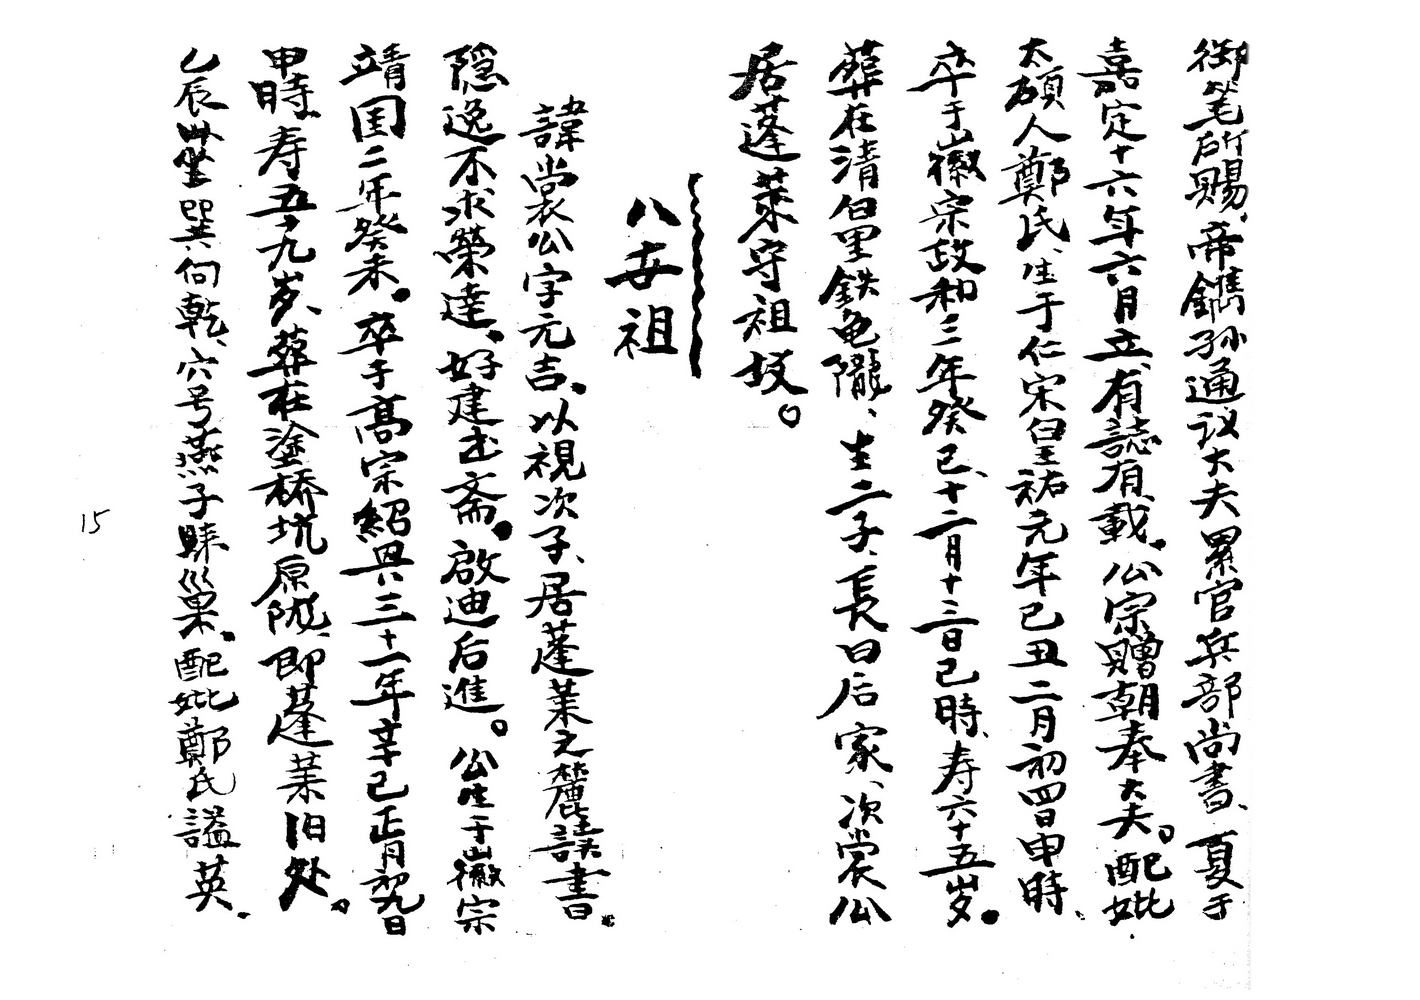 御笔所赐、帝鐫孙通议大夫累官兵部尚書、夏于
嘉定十六年六月立、有誌有載。公宗赠朝奉大夫。配妣
太碩人鄭氏、生于仁宋皇祐元年己丑二月初四日申時、
卒于徽宗政和三年癸巳、十二月十三日巳時、寿六十五岁。
葬在清白里鉄亀隴、生二子、長曰后家、次裳公
居蓬莱守祖坟。
八世祖
諱尚裳公字元吉。以視次子、居蓬莱之麓讀書
隠逸不求榮達、好建書斋。啟迪后進。公生于徽宗
靖国二年癸未。卒于高宗紹興三十一年辛巳正月初九日
申時、寿五十九岁、葬在塗桥坑原陇、即蓬莱旧处。
乙辰坐巽向乾、穴号燕子归巢。配妣鄭氏謚英。
15